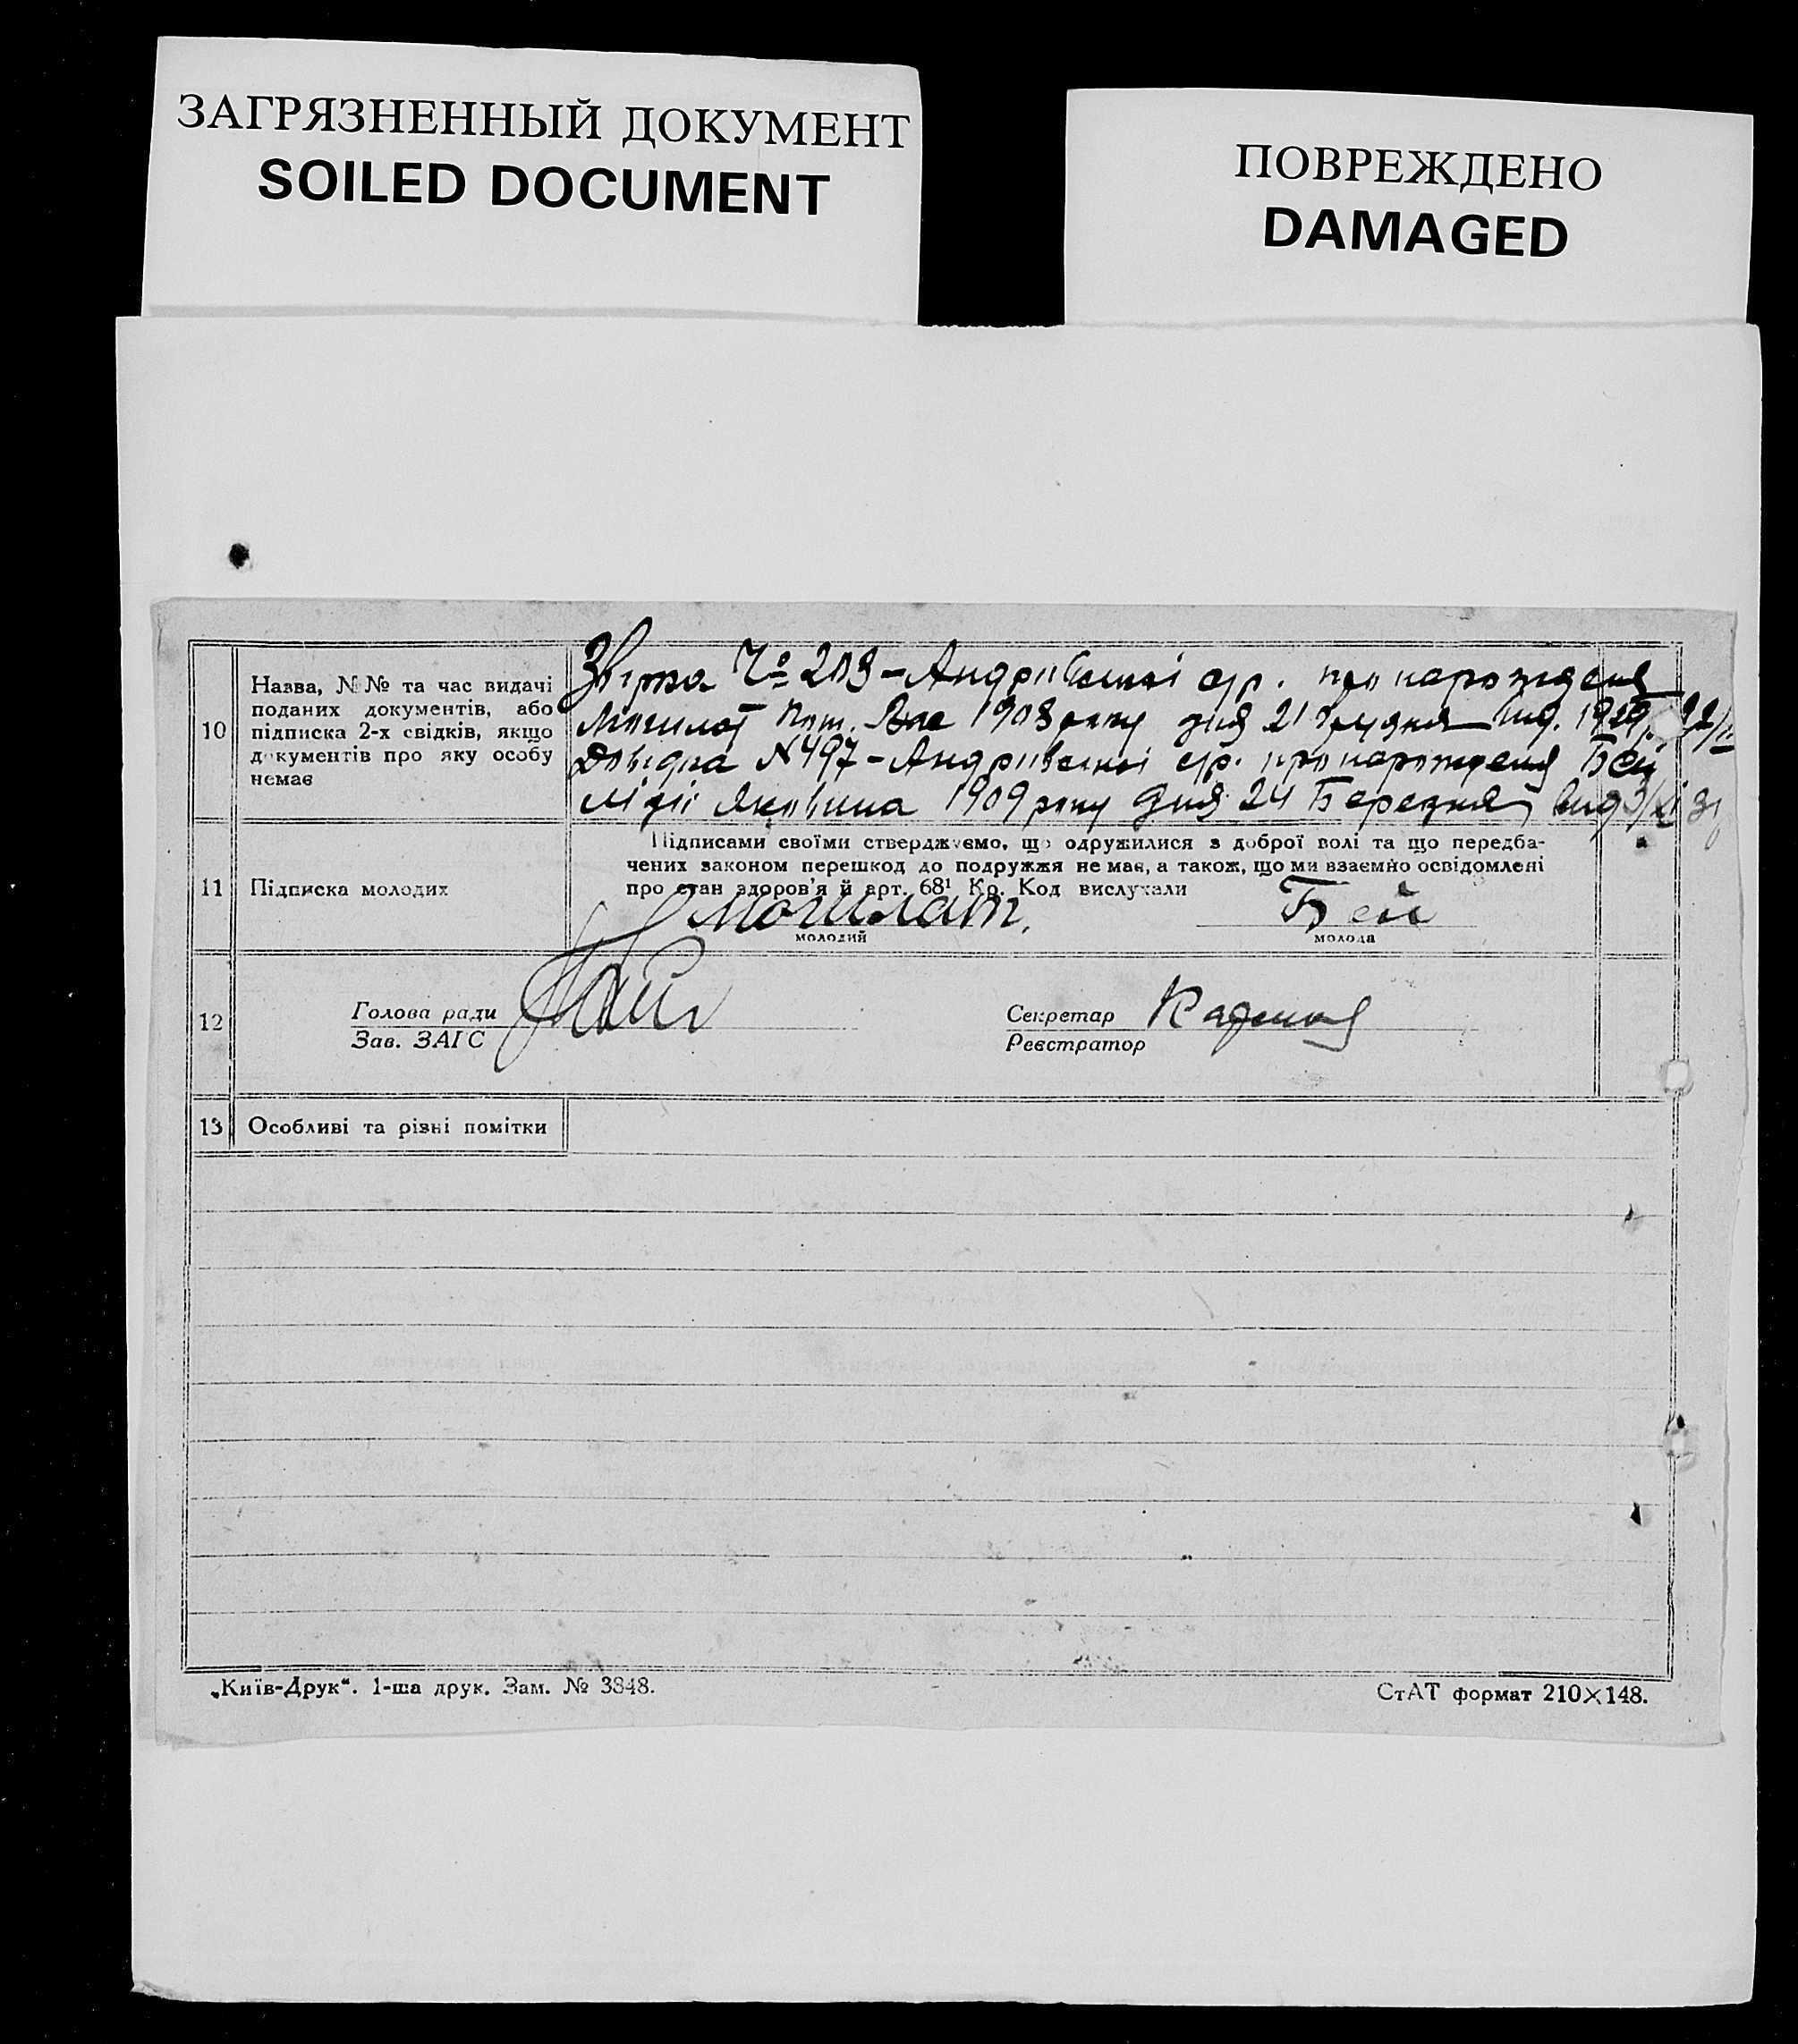 ЗАГРЯЗНЕННЫЙ ДОКУМЕНТ
SOILED DOCUMENT
ПОВРЕЖДЕНО
DAMAGED
10
Назва, N№ та час видачі
поданих документів, або
підписка 2-х свідків, якщо
документів про яку особу
немає
№ 203 – Андріївської с/р. про нарождення
1908 року дня 21 грудня вид. 1929
Довідка N 497 – Андріївської с/р. про нарождення Бей
Лідії Яковина 1909 року дня 24 Березня, вид 3/XI 31
11
Підписка молодих
Підписами своїми стверджуємо, що одружилися з доброї волі та що передба-
чених законом перешкод до подружжя не має, а також, що ми взаємно освідомлені
про стан здоров'я й арт. 68¹ Кр. Код вислухали
Могилат. Бей
молодий молода
12
Голова ради
Зав. ЗАГС
Секретар
Реєстратор
13
Особливі та різні помітки
„Київ-Друк“. 1-ша друк. Зам. № 3848.
СтАТ формат 210×148.